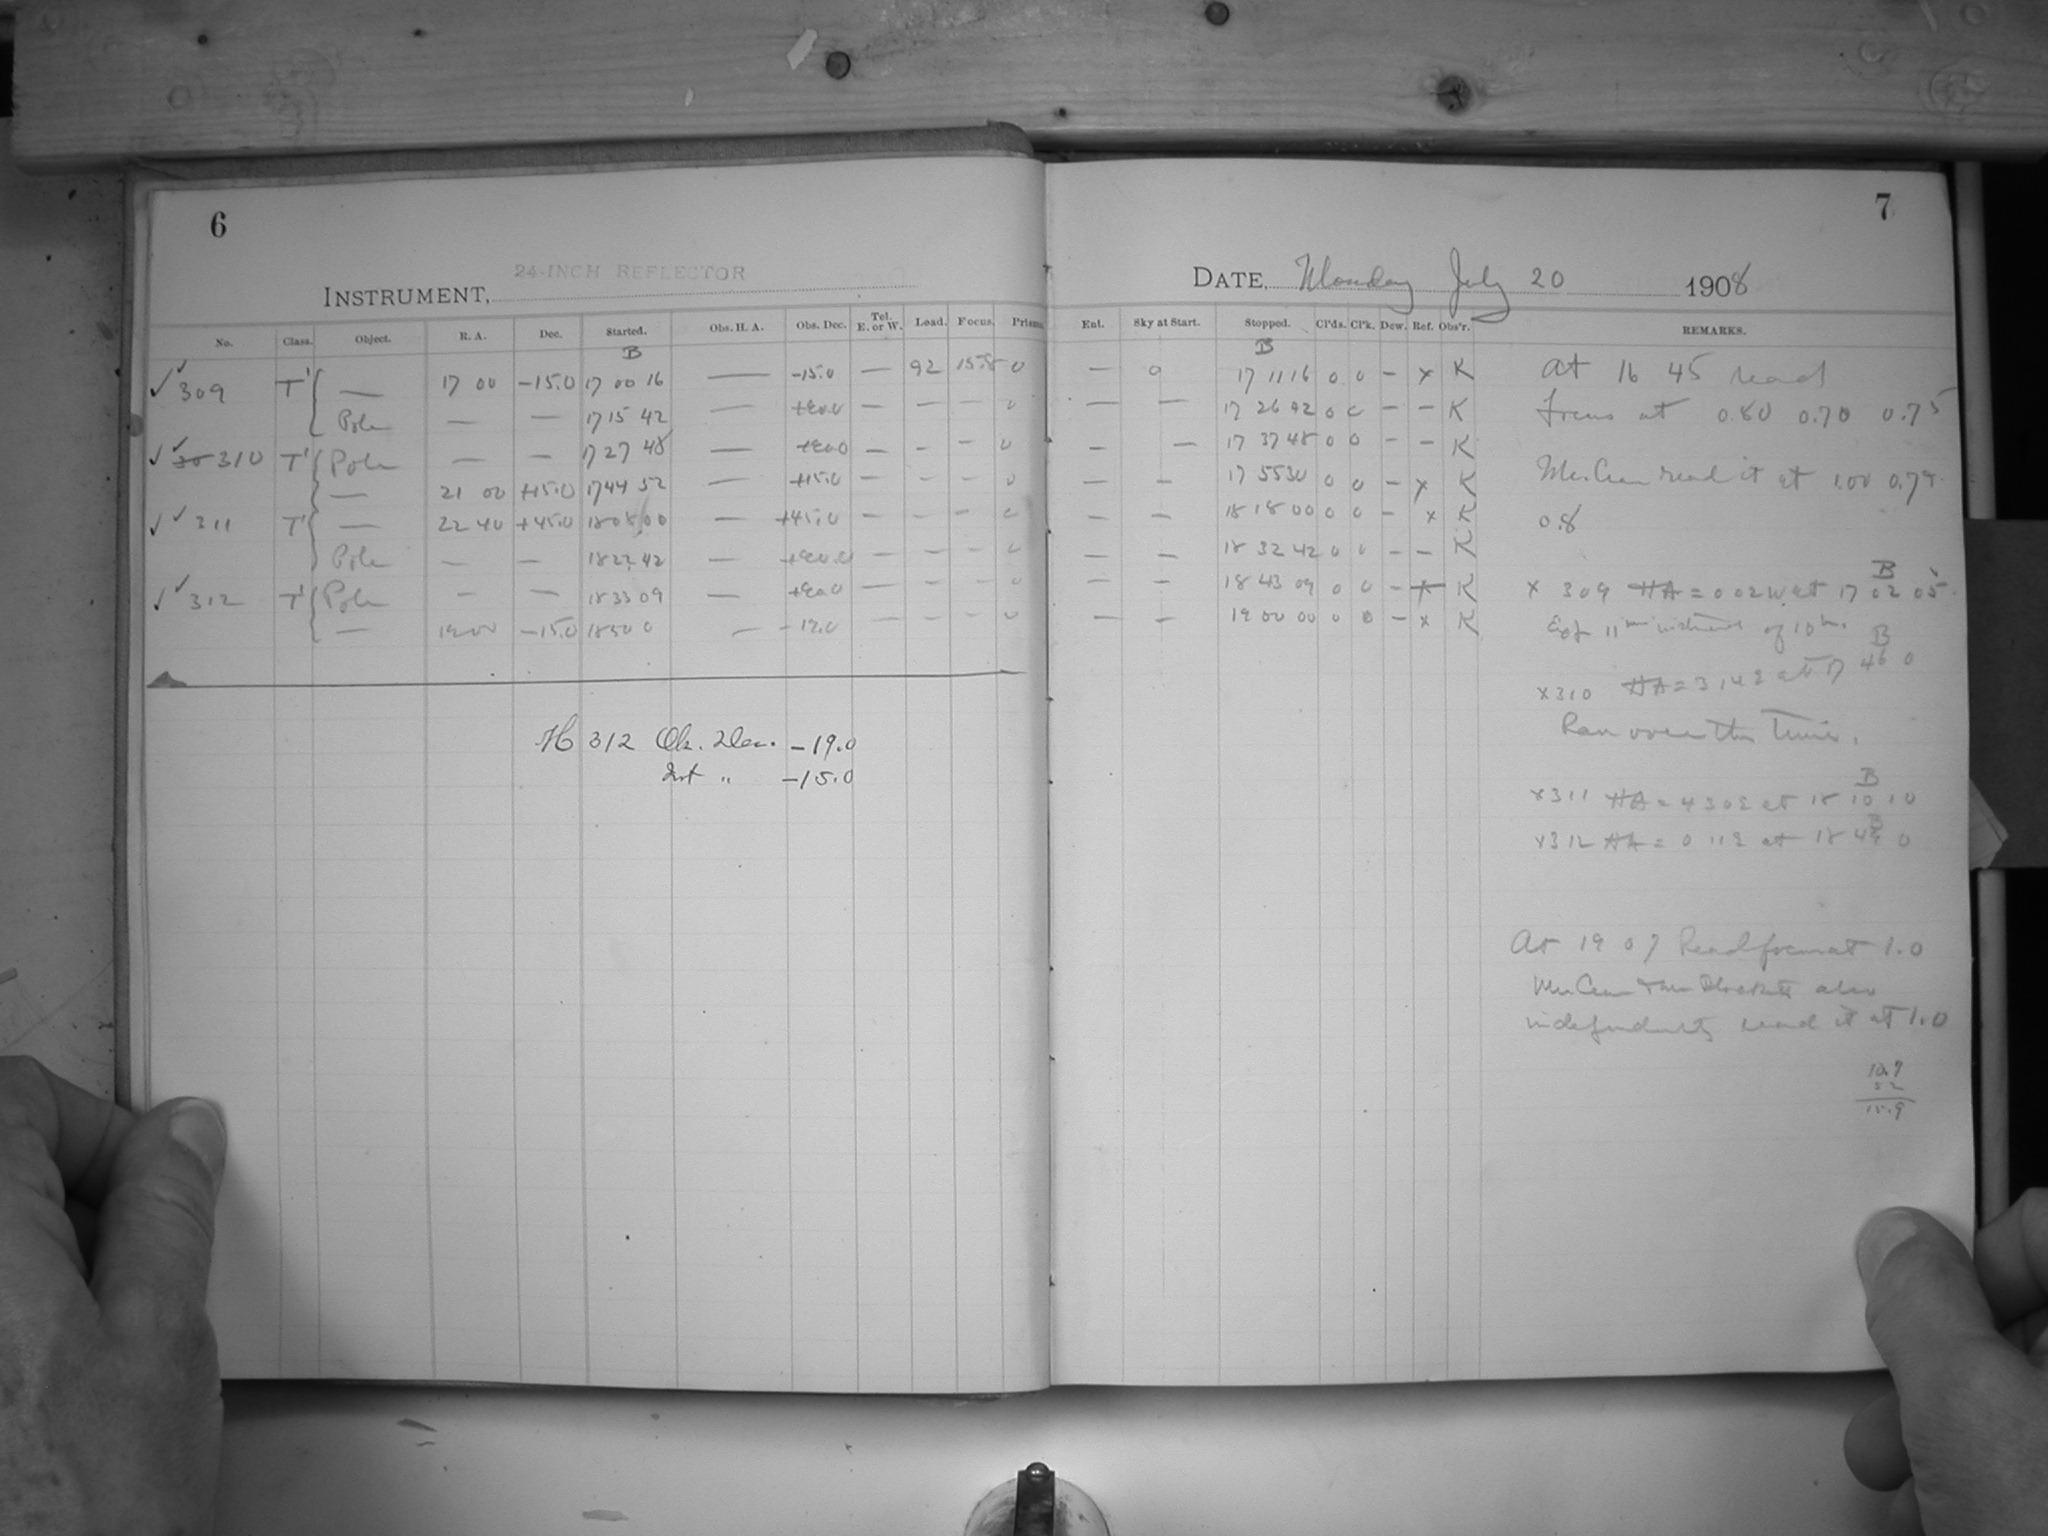 6
24-INCH REFLECTOR
INSTRUMENT,
No. Class. Object. R. A. Dec. Started. Obs. H. A. Obs. Dec. Tel. E. or W. Load. Focus. Prisms
B
✓✓ 309 T' { — 17 00 -15.0 17 00 16 — -15.0 — 92 15.8 0
Pole — — 17 15 42 — — — — 0
✓✓ 310 T' { Pole — — 17 27 48 — — — — 0
— 21 00 +15.0 17 44 52 — +15.0 — — — 0
✓✓ 311 T' { — 22 40 +45.0 18 08 00 — +45.0 — — — 0
Pole — — 18 22 42 — — — — 0
✓✓ 312 T' { Pole — — 18 33 09 — — — — 0
— 19 00 -15.0 18 50 0 — -19.0 — — — 0
H 312 Ob. Dec. -19.0
Inst " -15.0
7
DATE, Monday July 20 1908
Ent. Sky at Start. Stopped. Cl'ds. Cl'k. Dew. Ref. Obs'r. REMARKS.
B
— 0 17 11 16 0 0 — x K
— — 17 26 42 0 0 — — K
— — 17 37 48 0 0 — — K
— — 17 55 30 0 0 — x K
— — 18 18 00 0 0 — x K
— — 18 32 42 0 0 — — K
— — 18 43 09 0 0 — K
— — 19 00 00 0 0 — x K
At 16 45 read
focus at 0.80 0.70 0.75
read it at 1.00 0.79
0.8
B
x 309 HA = 0 02 W at 17 02 05
Exp 11m instead of 10m.
B
x 310 HA = 3 14 E at 17 46 0
Ran over the time.
B
x 311 HA = 4 30 E at 18 10 10
B
x 312 HA = 0 11 E at 18 49 0
At 19 07 Read focus at 1.0
also
independently read it at 1.0
10.7
5.2
15.9